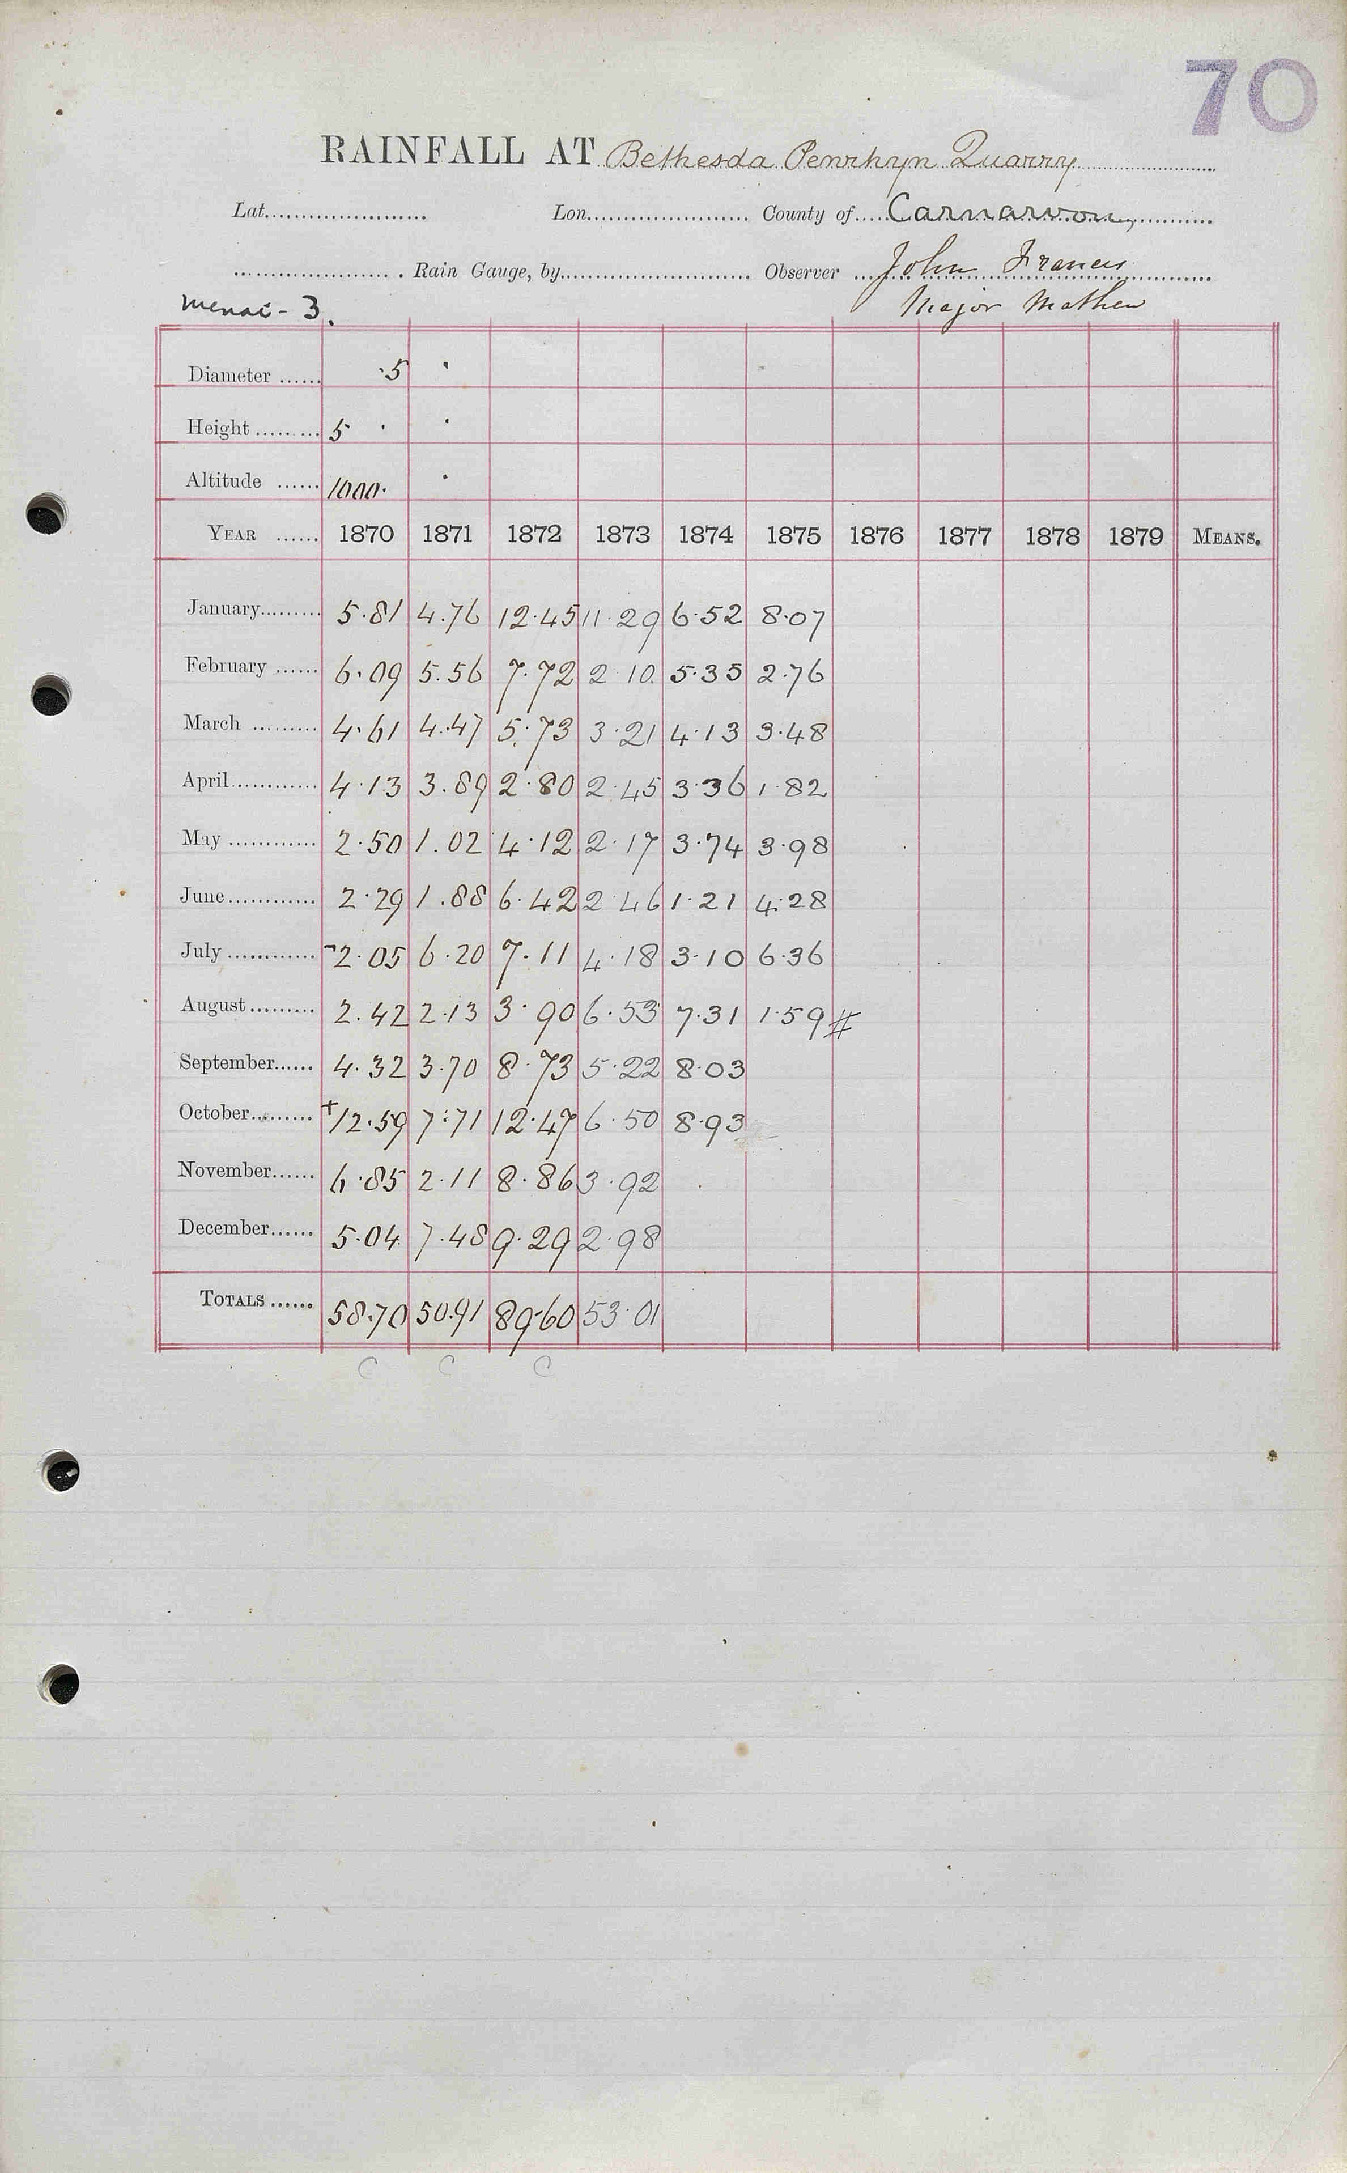 70
RAINFALL AT Bethesda Penrhyn Quarry
Lat. Lon. County of Carnarvon,
Rain Gauge, by Observer John Francis
Menai - 3. Major Mathew
Diameter ·5
Height 5 ·
Altitude 1000·
YEAR 1870 1871 1872 1873 1874 1875 1876 1877 1878 1879 MEANS.
January 5·81 4.76 12·45 11·29 6·52 8·07
February 6·09 5.56 7·72 2·10 5·35 2·76
March 4·61 4.47 5·73 3·21 4·13 3·48
April 4·13 3.89 2·80 2·45 3·36 1·82
May 2·50 1.02 4·12 2·17 3·74 3·98
June 2·29 1.88 6·42 2·46 1·21 4·28
July -2·05 6·20 7·11 4·18 3·10 6·36
August 2.42 2·13 3·90 6·53 7·31 1·59 #
September 4·32 3·70 8·73 5·22 8·03
October +12·59 7·71 12·47 6·50 8·93
November 6·85 2·11 8·86 3·92
December 5·04 7·48 9·29 2·98
TOTALS 58·70 50.91 89·60 53·01
C C C